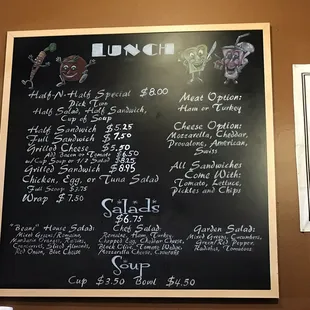 LUNCH
Half-N-Half Special $8.00
Pick Two
Half Salad, Half Sandwich,
Cup of Soup
Half Sandwich $5.25
Full Sandwich $7.50
Grilled Cheese $5.50
Add Bacon or Tomato
w/Cup Soup or 1/2 Salad
Grilled Sandwich $8.95
Chicken, Egg, or Tuna Salad
Full Scoop
Wrap $7.50
Meat Option:
Ham or Turkey
Cheese Option:
Mozzarella, Cheddar,
Provolone, American,
Swiss
All Sandwiches
Come With:
Tomato, Lettuce,
Pickles and Chips
Salads
$6.75
"Beans" House Salad:
Mixed Greens/Romaine,
Mandarin Oranges, Raisins,
Craisins, Sliced Almonds,
Red Onion, Blue Cheese
Chef Salad:
Romaine, Ham, Turkey,
Chopped Egg, Cheddar Cheese,
Black Olive, Tomato Wedge,
Mozzarella Cheese,
Garden Salad:
Mixed Greens, Cucumbers,
Green/Red Pepper,
Radishes, Tomatoes
Soup
Cup $3.50 Bowl $4.50